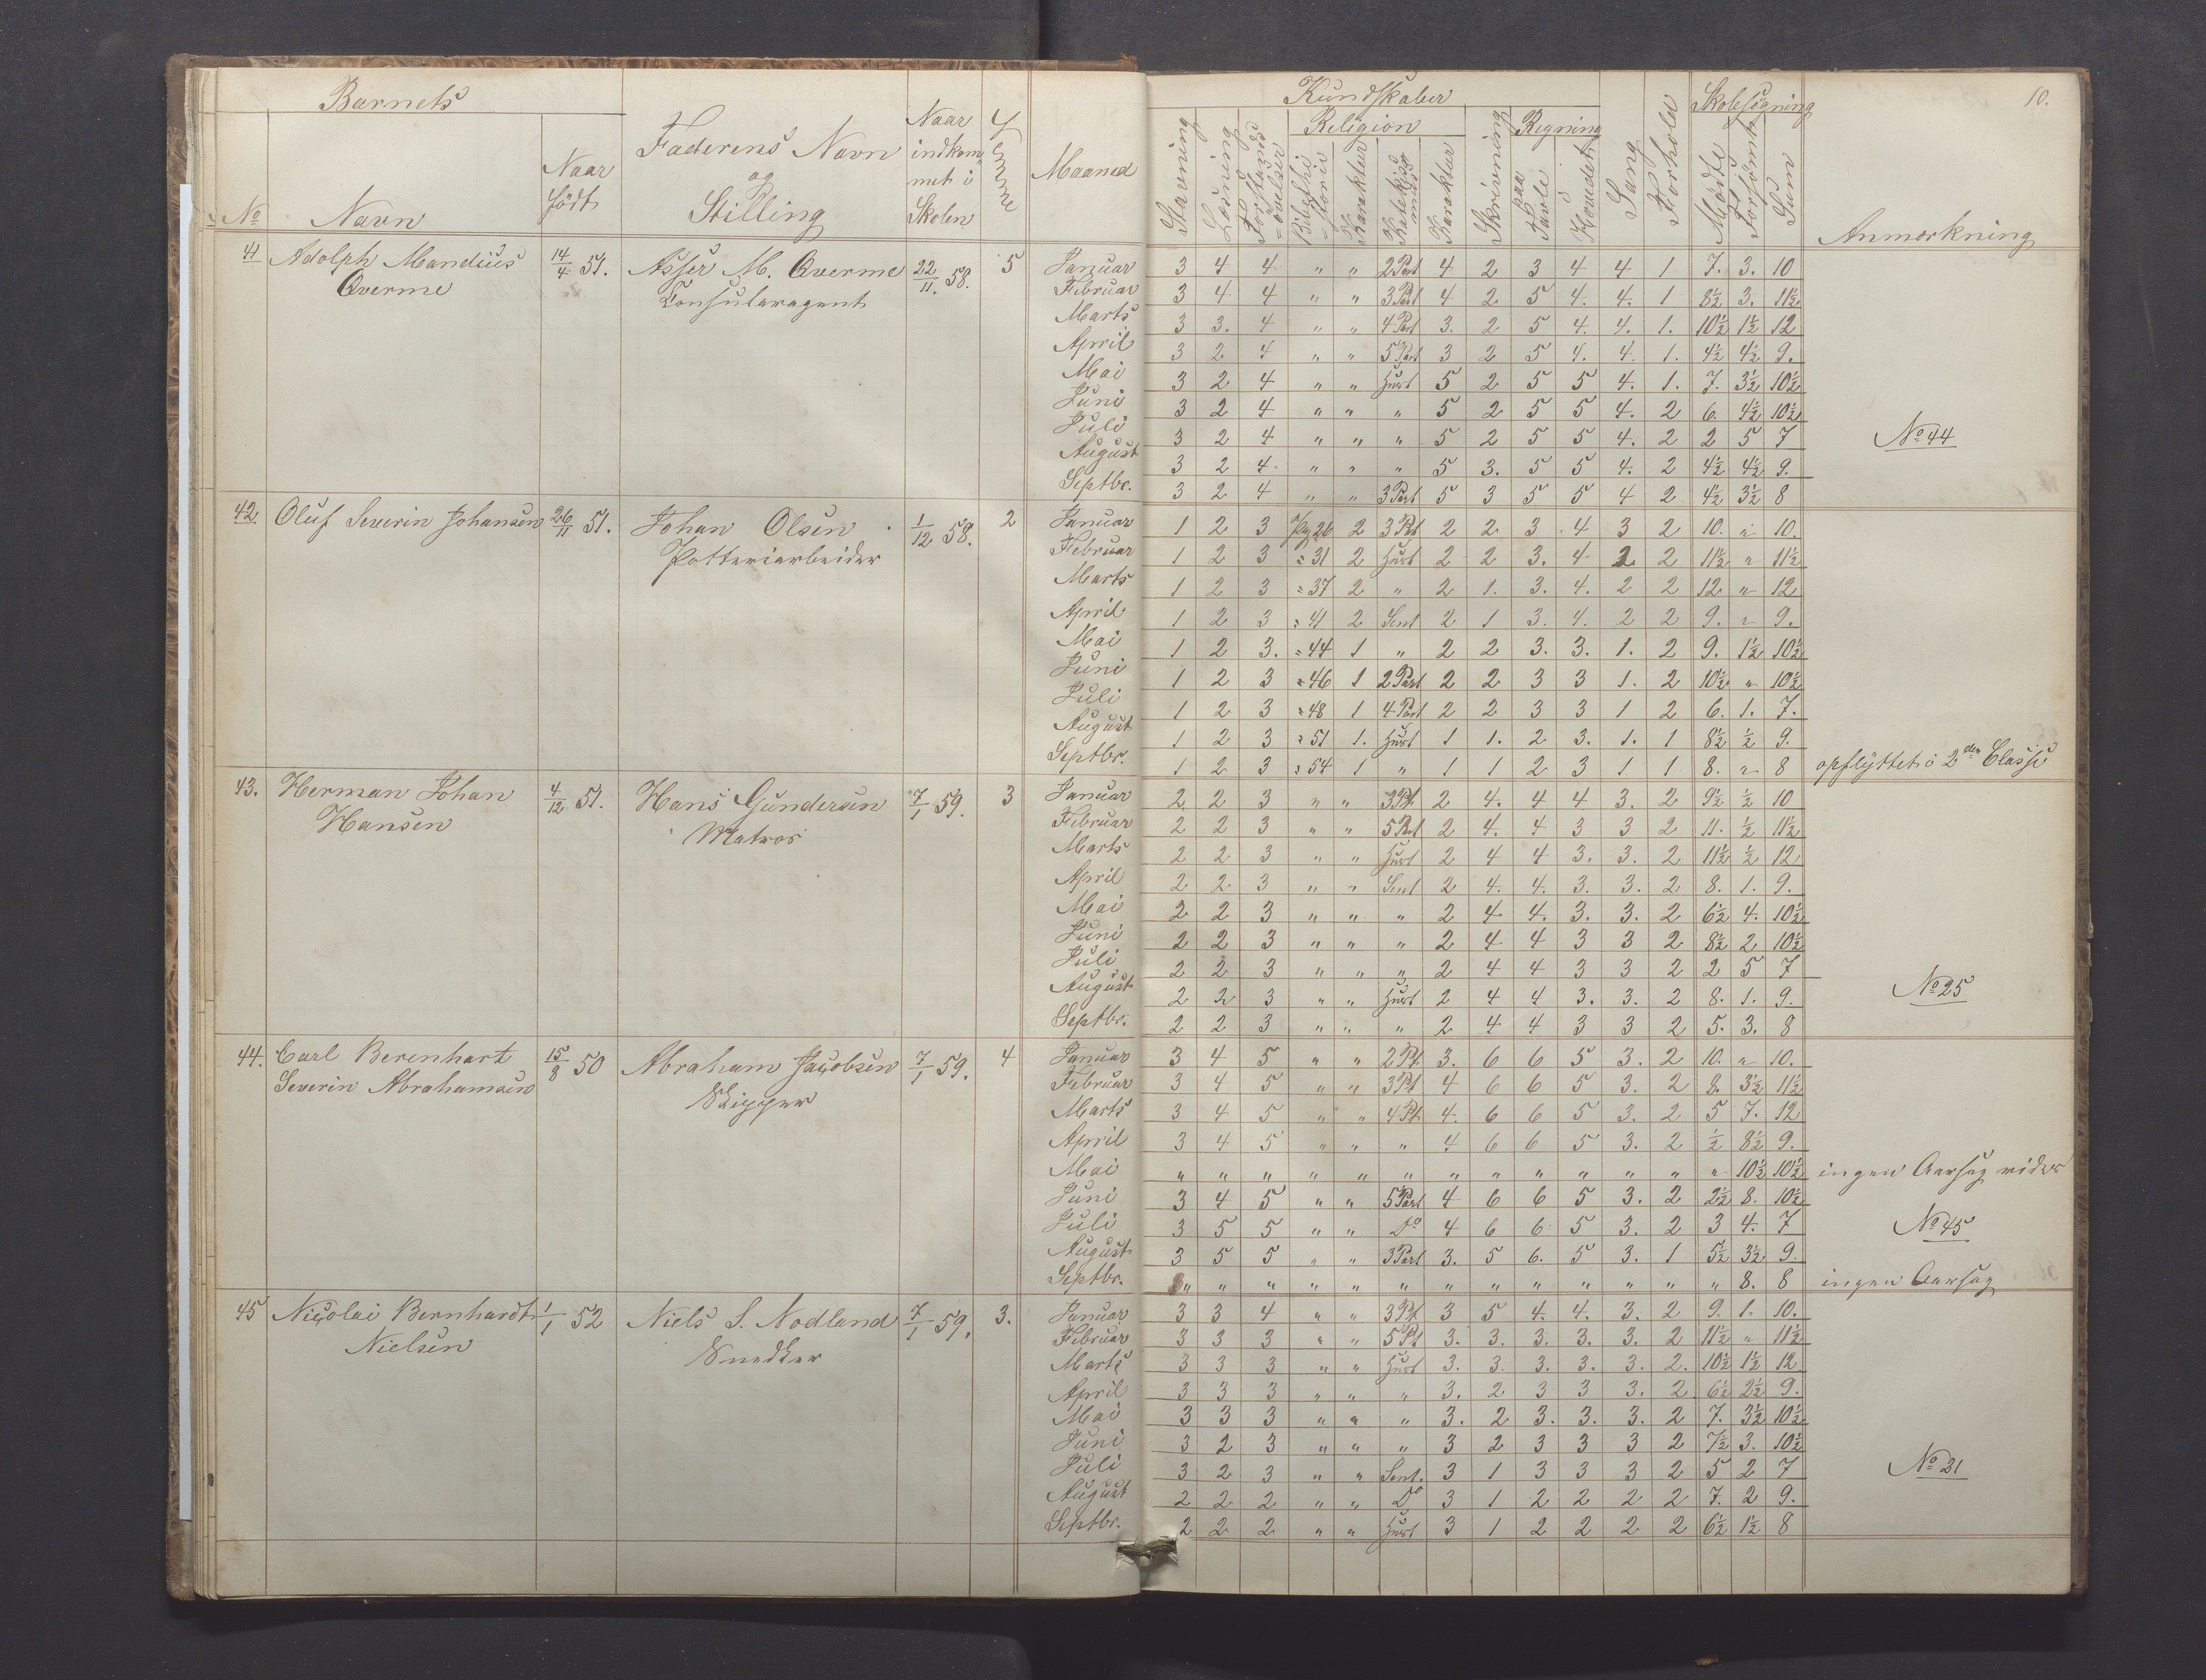 10.
Barnets
No
Navn
Naar født
Faderens Navn og Stilling
Naar indkommet i Skolen
Evne
Maaned
Kundskaber
Stavning
Læsning
Forstandsøvelser
Religion
Bibelhistorie
Karakter
Katekismus
Karakter
Skrivning
Regning
paa Tavle
i Hovedet
Sang
Forhold
Skolesøgning
Mødte
Forsømt
Sum
Anmærkning
41 Adolph Mandius Qverme 14/4 51. Asser M. Qverme Consularagent 22/11. 58. 5
Januar 3 4 4 " " 2 Part 4 2 3 4 4 1 7. 3. 10
Februar 3 4 4 " " 3 Part 4 2 5 4. 4. 1 8½ 3. 11½
Marts 3 3. 4 " " 4 Part 3. 2 5 4. 4. 1. 10½ 1½ 12
April 3 2 4 " " 5 Part 3 2 5 4. 4. 1. 4½ 4½ 9.
Mai 3 2 4 " " Hust 5 2 5 5 4. 1. 7. 3½ 10½
Juni 3 2 4 " " " 5 2 5 5 4. 2 6. 4½ 10½
Juli 3 2 4 " " " 5 2 5 5 4. 2 2 5 7 No 44
August 3 2 4. " " " 5 3. 5 5 4. 2 4½ 4½ 9.
Septbr. 3 2 4 " " 3 Part 5 3 5 5 4 2 4½ 3½ 8
42 Oluf Severin Johansen 26/11 51. Johan Olsen Potteriarbeider 1/12 58. 2
Januar 1 2 3 Pag 26 2 3 Part 2 2 3 4 3 2 10. " 10.
Februar 1 2 3 " 31 2 Hust 2 2 3. 4 2 2 11½ " 11½
Marts 1 2 3 " 37 2 " 2 1. 3. 4. 2 2 12 " 12
April 1 2 3 " 41 2 Sent 2 1 3. 4. 2 2 9. " 9.
Mai 1 2 3. " 44 1 " 2 2 3. 3. 1. 2 9. 1½ 10½
Juni 1 2 3 " 46 1 2 Part 2 2 3 3 1. 2 10½ " 10½
Juli 1 2 3 " 48 1 4 Part 2 2 3 3 1 2 6. 1. 7.
August 1 2 3 " 51 1. Hust 1 1. 2 3. 1. 1 8½ ½ 9.
Septbr. 1 2 3 " 54 1 " 1 1 2 3 1 1 8. " 8 opflyttet i 2den Classe
43. Herman Johan Hansen 4/12 51. Hans Gundersen Matros 7/1 59. 3
Januar 2 2 3 " " 3 Pt. 2 4. 4 4 3. 2 9½ ½ 10
Februar 2 2 3 " " 5 Part 2 4. 4 3 3 2 11. ½ 11½
Marts 2 2 3 " " Hust 2 4 4 3. 3. 2 11½ ½ 12
April 2 2 3 " " Sent 2 4. 4. 3. 3. 2 8. 1. 9.
Mai 2 2 3 " " " 2 4 4. 3. 3. 2 6½ 4. 10½
Juni 2 2 3 " " " 2 4 4 3 3 2 8½ 2 10½
Juli 2 2 3 " " " 2 4 4 3 3 2 2 5 7
August 2 2 3 " " Hust 2 4 4 3. 3. 2 8. 1. 9. No 25
Septbr. 2 2 3 " " " 2 4 4 3 3 2 5. 3. 8
44. Carl Berenhart Severin Abrahamsen 15/8 50 Abraham Jacobsen Skipper 7/1 59. 4
Januar 3 4 5 " " 2 Pt. 3. 6 6 5 3. 2 10. " 10.
Februar 3 4 5 " " 3 Pt 4 6 6 5 3. 2 8. 3½ 11½
Marts 3 4 5 " " 4 Pt. 4. 6 6 5 3. 2 5 7. 12
April 3 4 5 " " " 4 6 6 5 3. 2 ½ 8½ 9.
Mai " " " " " " " " " " " " " 10½ 10½ ingen Aarsag vides
Juni 3 4 5 " " 5 Part 4 6 6 5 3. 2 2½ 8. 10½
Juli 3 5 5 " " Do 4 6 6 5 3. 2 3 4. 7 No 45
August 3 5 5 " " 3 Part 3. 5 6. 5 3. 1 5½ 3½ 9.
Septbr. " " " " " " " " " " " " " 8. 8 ingen Aarsag
45 Nicolai Bernhardt Nielsen 1/1 52 Niels S. Nodland Snedker 7/1 59. 3.
Januar 3 3 4 " " 3 Pt 3 5 4. 4. 3. 2 9. 1. 10.
Februar 3 3 3 " " 5 Pt 3. 3. 3. 3. 3. 2 11½ " 11½
Marts 3 3 3 " " Hust 3. 3 3. 3. 3. 2. 10½ 1½ 12
April 3 3 3 " " " 3. 2 3 3 3. 2 6½ 2½ 9.
Mai 3 3 3 " " " 3. 2 3. 3. 3. 2 7. 3½ 10½
Juni 3 2 3 " " " 3 2 3 3 3 2 7½ 3. 10½
Juli 3 2 3 " " Sent. 3 1 3 3 3 2 5 2 7 No 21
August 2 2 2 " " Do 3 1 2 2 2 2 7. 2 9.
Septbr. 2 2 2 " " Hust 3 1 2 2 2 2 6½ 1½ 8